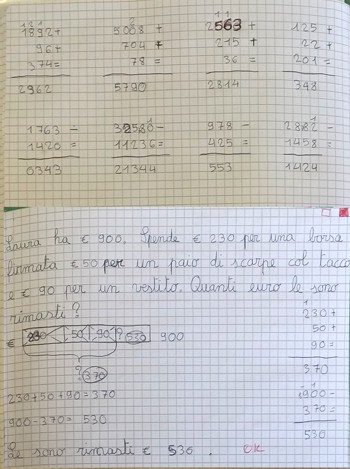 1892+ 5008+ 2563+ 125+
96+ 704+ 215+ 22+
374= 78= 36= 201=
2362 5790 2814 348
1763- 32580- 978- 2882-
1420= 11236= 425= 1458=
0343 21344 553 1424
Laura ha € 900. Spende € 230 per una borsa
firmata € 50 per un paio di scarpe col tacco
e € 90 per un vestito. Quanti euro le sono
rimasti?
€ 230 50 90 ? 530 900
? 370
230+50+90=370
900-370= 530
Le sono rimasti € 530. ok
230+
50+
90=
370
900-
370=
530